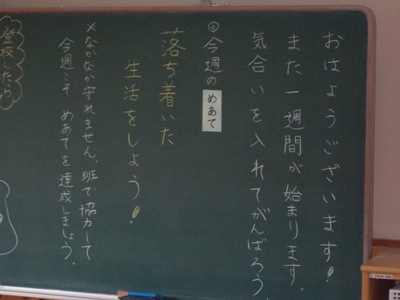 おはようございます!
また一週間が始まります。
気合いを入れてがんばろう。
今週の めあて
落ち着いた
生活をしよう!
×なかなか守れません。班で協力して
今週こそ めあてを達成しましょう。
登校したら